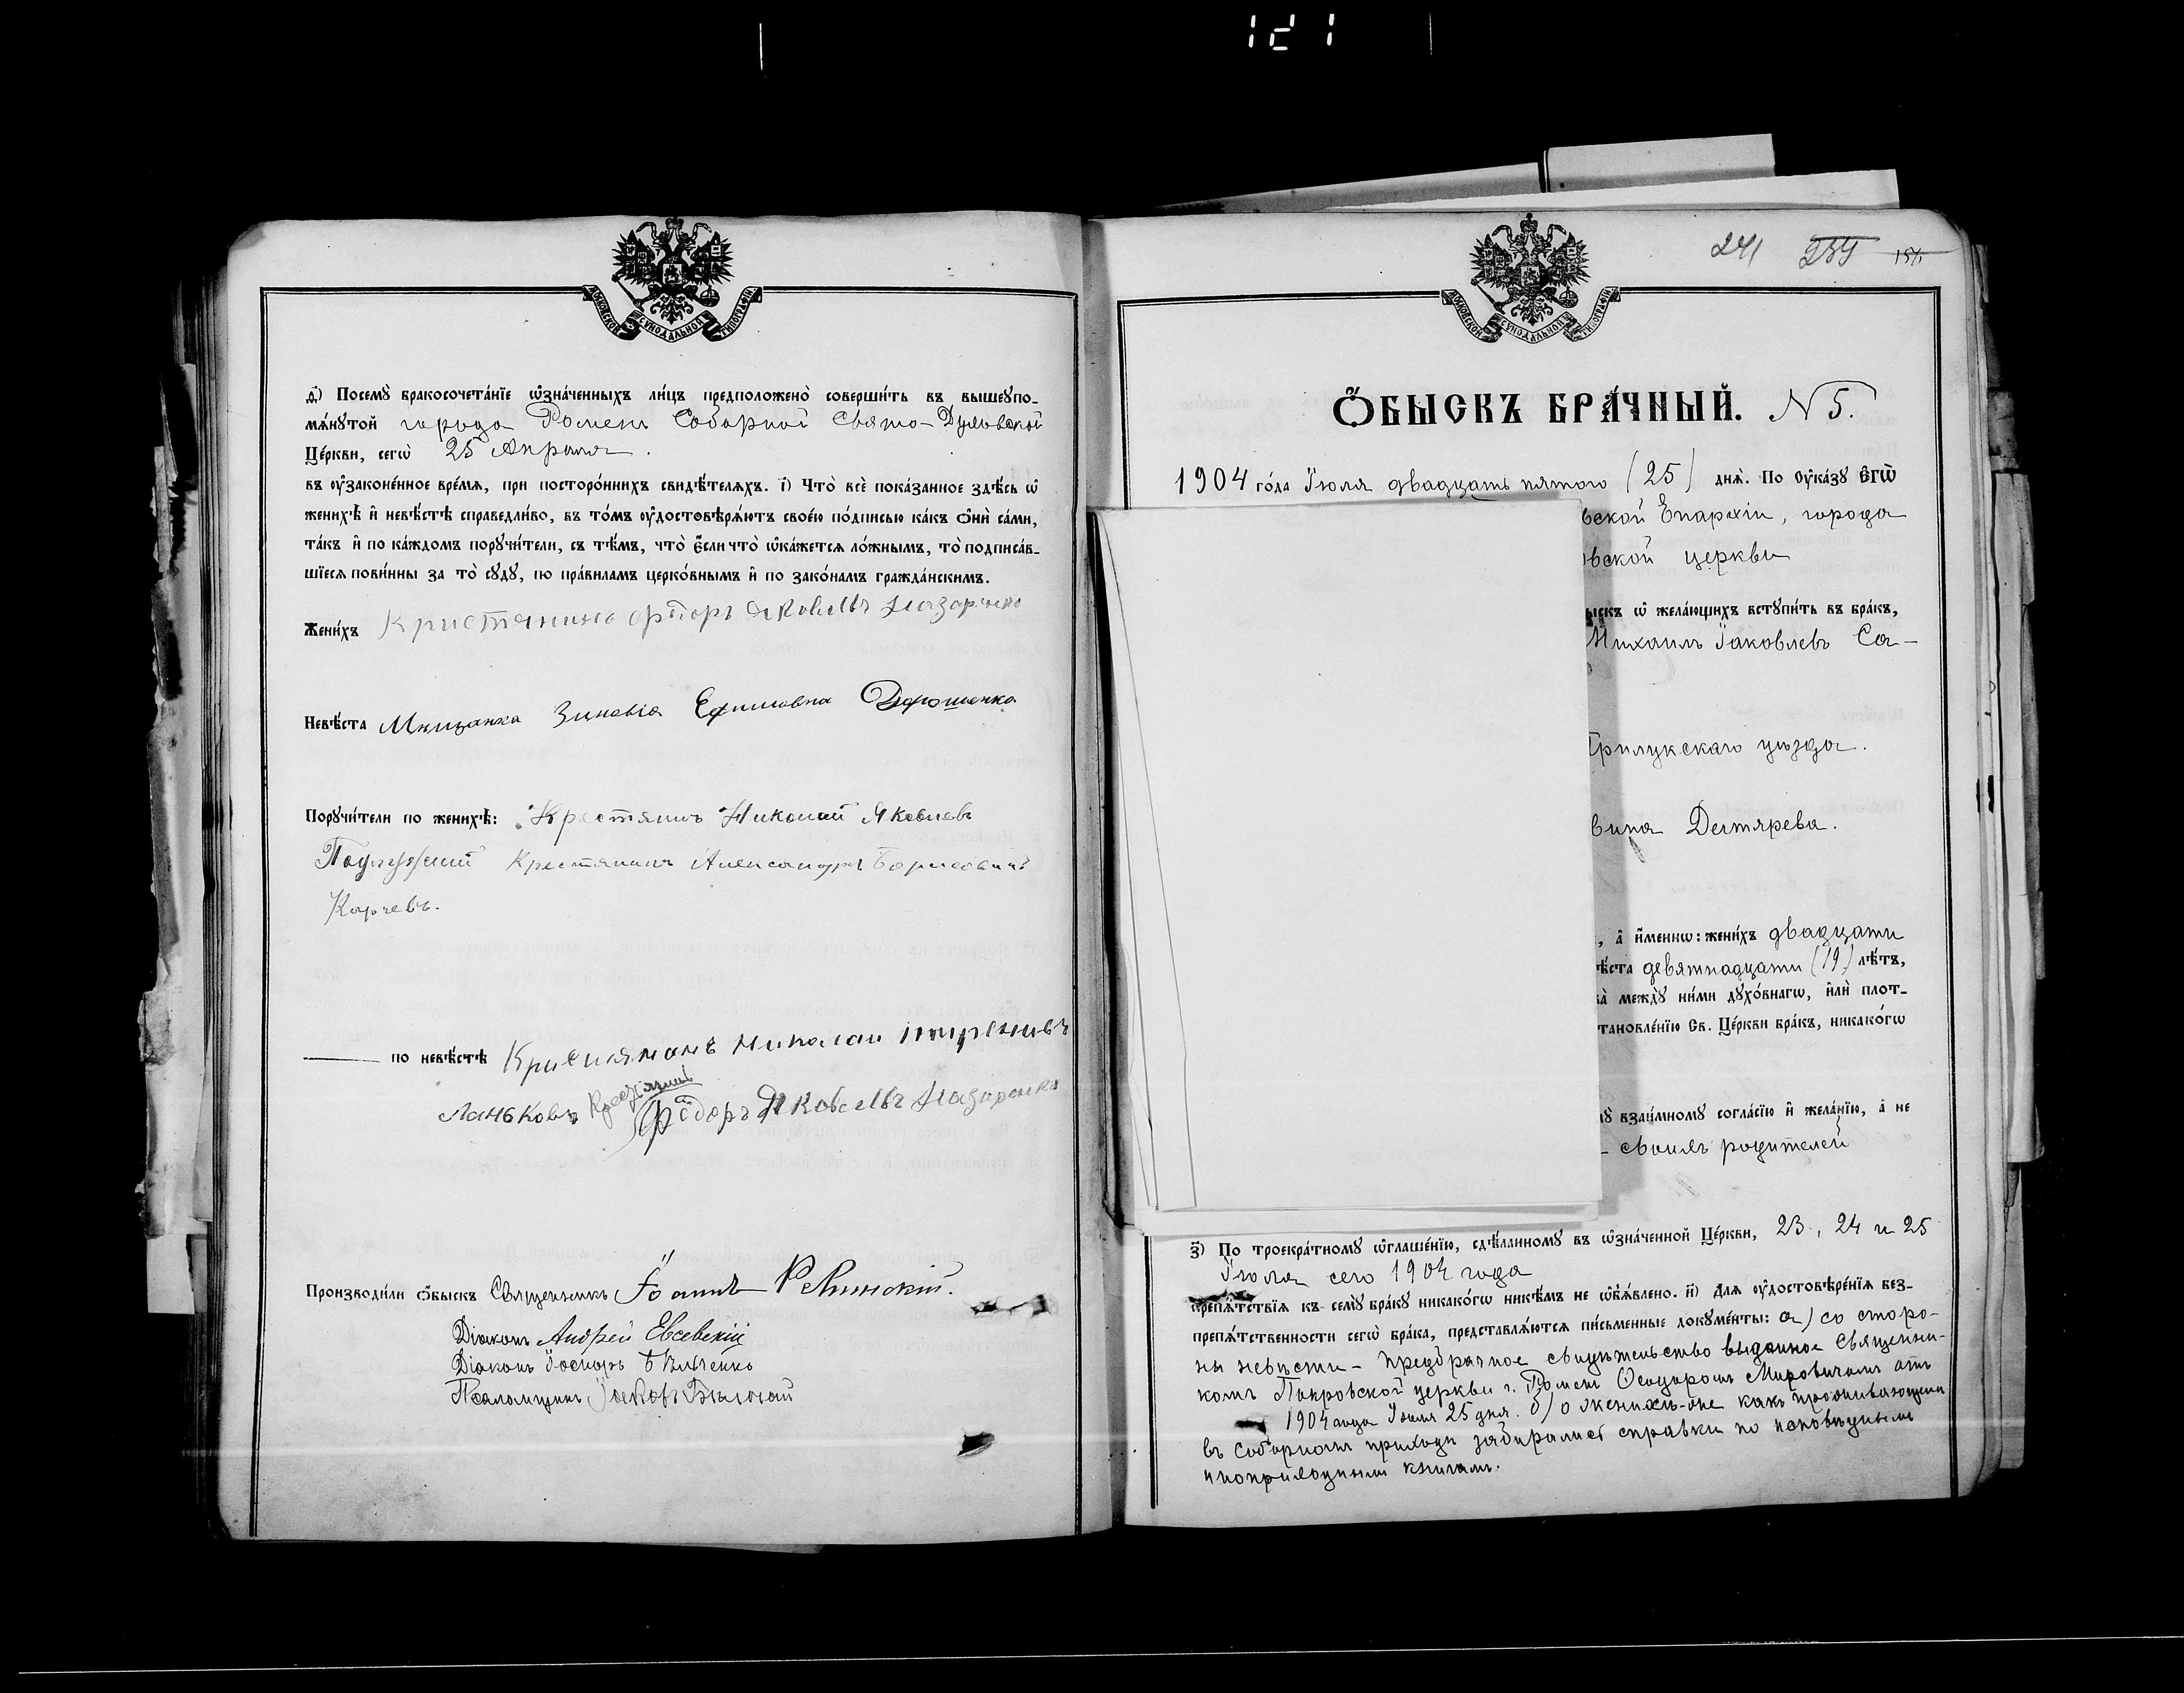 121
МОСКОВСКОЙ СУНОДАЛЬНОЙ ТИПОГРАФІИ
д҃) Посемꙋ̀ бракосочета́нїе ѡ҆зна́ченныхъ ли́цъ предположено̀ соверши́ть въ вышеꙋпо-
мѧ́нꙋтой города Роменъ Соборной Свято-Духовской
Це́ркви, сегѡ̀ 25 Апрѣля.
въ ᲂу҆зако́ненное вре́мѧ, при посторо́ннихъ свидѣ́телѧхъ. і҃) Что̀ всѐ пока́занное здѣ́сь ѡ҆
женихѣ̀ и҆ невѣ́стѣ справедли́во, въ то́мъ ᲂу҆достовѣрѧ́ютъ свое́ю по́дписью ка́къ ѻ҆нѝ са́ми,
та́къ и҆ по ка́ждомъ порꙋчи́тели, съ тѣ́мъ, что̀ є҆́сли что̀ ѡ҆ка́жетсѧ ло́жнымъ, то̀ подписа́в-
шїесѧ пови́нны за то̀ сꙋдꙋ̀, по пра́виламъ церко́внымъ и҆ по зако́намъ гражда́нскимъ.
Жени́хъ Кристянинъ Фтдоръ Яковлвъ Назаренко
Невѣ́ста Мѣщанка Зиновія Ефимовна Дорошенко
Порꙋчи́тели по женихѣ̀: Крестянинъ Николай Яковлевъ
Крестянинъ Александръ Борисовичъ
Карчевъ.
по невѣ́стѣ Николай
Ланьковъ Крестянинъ Фёдоръ Яковлвъ Назаренко
Производи́ли ѻ҆́быскъ Священникъ Іоаннъ
Діаконъ Андрей Евсевскій
Діаконъ
Псаломщикъ Іаковъ
241 239 151
МОСКОВСКОЙ СУНОДАЛЬНОЙ ТИПОГРАФІИ
Ѻ҆́БЫСКЪ БРА́ЧНЫЙ. N 5.
1904 го́да Іюля двадцать пятого (25) днѧ̀. По ᲂу҆ка́зꙋ Е҆гѡ̀
вской Епархіи, города
вской церкви
ыскъ ѡ҆ жела́ющихъ вступи́ть въ бра́къ,
Михаилъ Іаковлевъ Са-
Прилукскаго уѣзда.
вина Дегтярева.
, а҆ и҆́меннѡ: жени́хъ двадцати
ѣ́ста девятнадцати (19) лѣ́тъ,
ва̀ междꙋ̀ ни́ми дꙋхо́внагѡ, и҆лѝ плот-
тановле́нїю Св. Це́ркви бра́къ, никако́гѡ
мꙋ̀ взаи́мномꙋ согла́сїю и҆ жела́нїю, а҆ не
- своихъ родителей
з҃) По троекра́тномꙋ ѡ҆глаше́нїю, сдѣ́ланномꙋ въ ѡ҆зна́ченной Це́ркви, 23, 24 и 25
Іюля сего 1904 года
препѧ́тствїѧ къ семꙋ̀ бра́кꙋ никако́гѡ никѣ́мъ не ѡ҆б̾ѧ́влено. и҃) Длѧ ᲂу҆достовѣре́нїѧ без-
препѧ́тственности сегѡ̀ бра́ка, представлѧ́ютсѧ пи́сьменные докꙋме́нты: а) со сторо-
ны невѣсты - предбрачное свидѣтельство выданное Священни-
комъ Покровской церкви г. Роменъ Ѳеодоромъ Мировичемъ отъ
1904 года Іюля 25 дня. б) о женихѣ-же какъ проживающемъ
въ Соборномъ приходѣ забирались справки по исповѣднымъ
и по приходнымъ книгамъ.